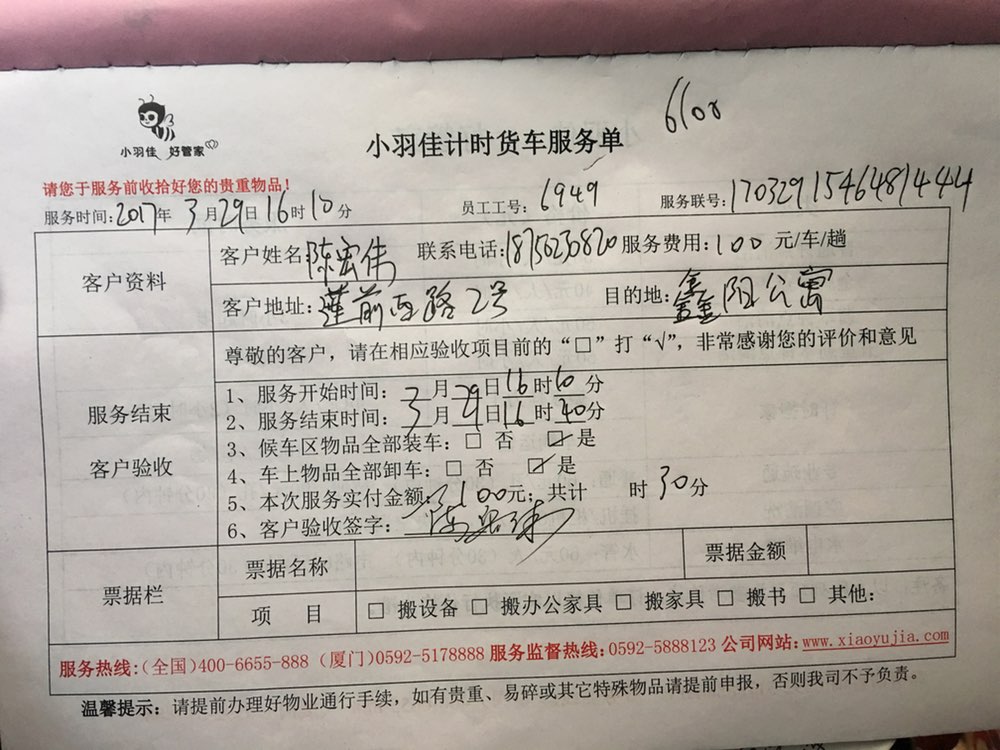 6100
小羽佳 好管家
小羽佳计时货车服务单
请您于服务前收拾好您的贵重物品!
服务时间:2017年 3月29日16时10分 员工工号:6949 服务联号:170329154648144
客户资料
客户姓名:陈宏伟 联系电话: 服务费用:100 元/车/趟
客户地址:莲前西路2号 目的地:鑫阳公寓
服务结束
客户验收
尊敬的客户，请在相应验收项目前的“□”打“√”，非常感谢您的评价和意见
1、服务开始时间: 3月29日16时10分
2、服务结束时间: 3月29日16时40分
3、候车区物品全部装车: □ 否 ☑ 是
4、车上物品全部卸车: □ 否 ☑ 是
5、本次服务实付金额: 100元; 共计 时30分
6、客户验收签字: 陈宏伟
票据栏
票据名称 票据金额
项 目 □ 搬设备 □ 搬办公家具 □ 搬家具 □ 搬书 □ 其他:
服务热线:(全国)400-6655-888 (厦门)0592-5178888 服务监督热线:0592-5888123 公司网站:www.xiaoyujia.com
温馨提示: 请提前办理好物业通行手续，如有贵重、易碎或其它特殊物品请提前申报，否则我司不予负责。